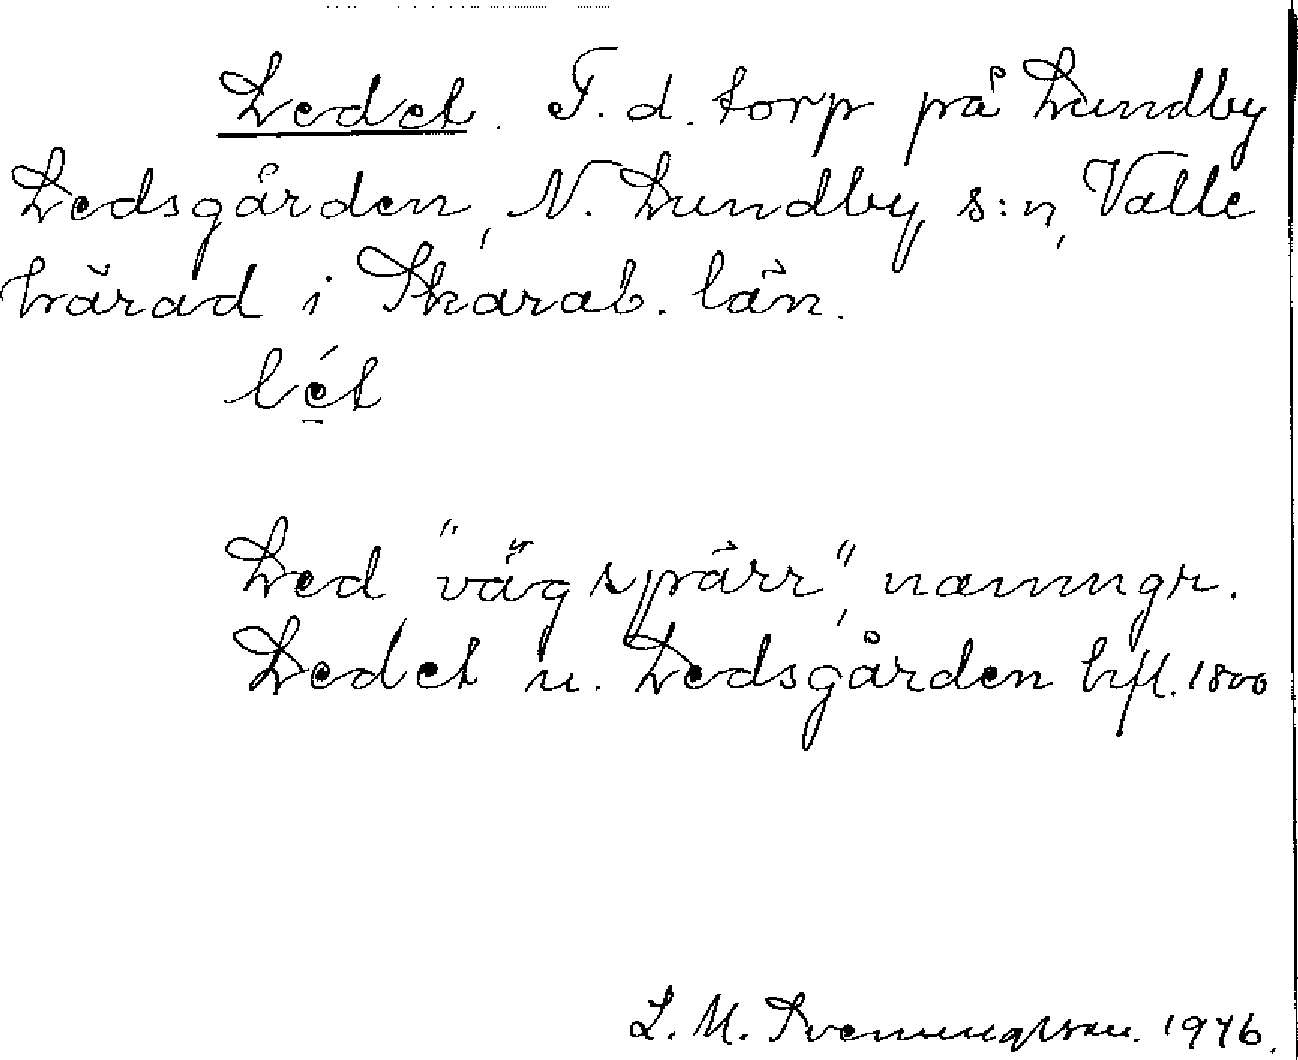 Ledet. F. d. torp på Lundby
Ledsgården, N. Lundby s:n, Valle
härad i Skarab. län.
lét
Led "vägspärr", namngr.
Ledet u. Ledsgården hfl. 1800
L. M. Svenungsson. 1946.